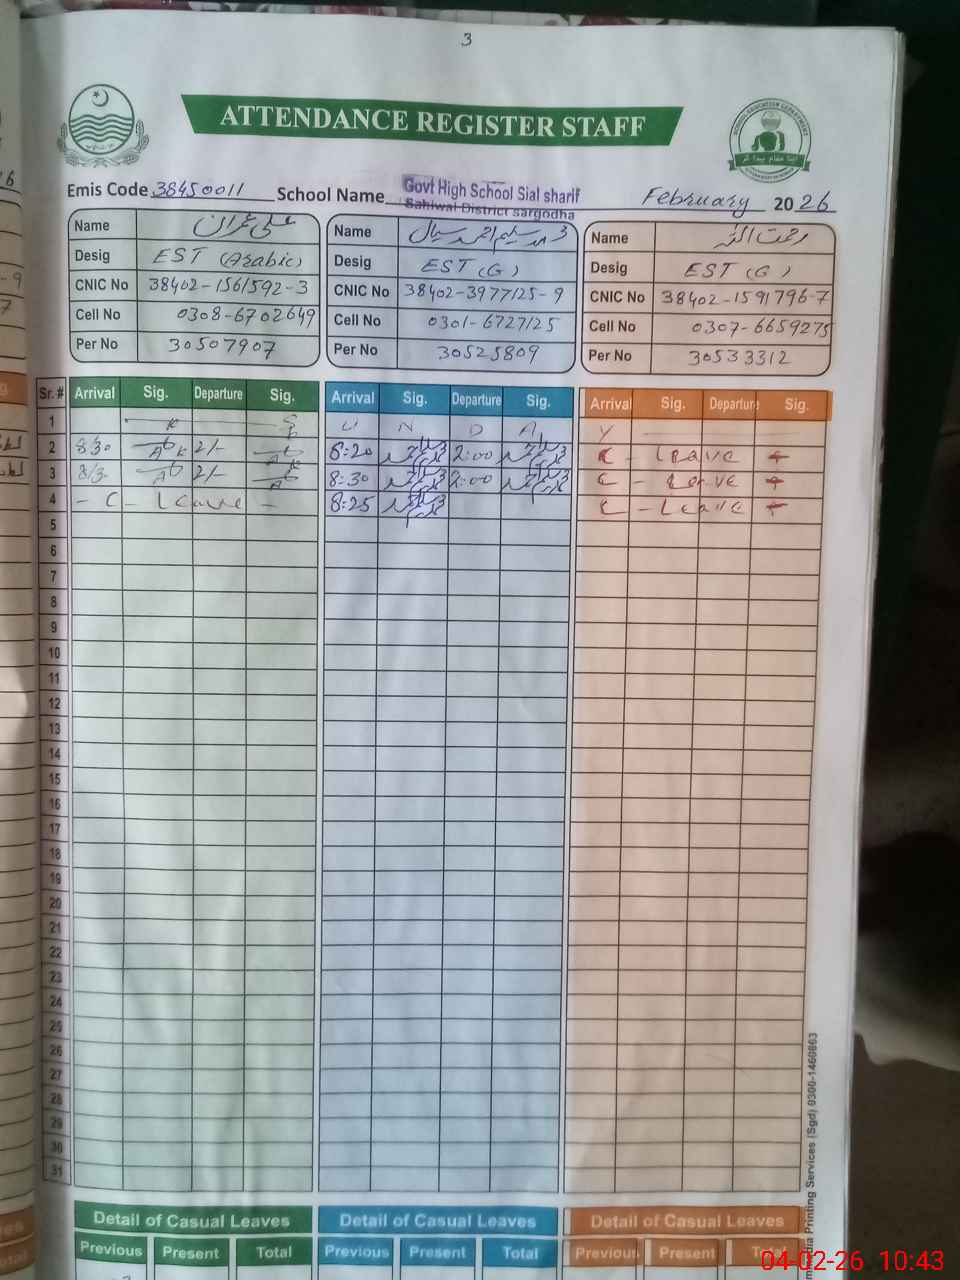 3
ATTENDANCE REGISTER STAFF
Emis Code 38450011 School Name Govt High School Sial sharif February 2026
Sahiwal District sargodha
Name علی عمران
Desig EST (Arabic)
CNIC No 38402-1561592-3
Cell No 0308-6702649
Per No 30507907
Name محمد سلیم احمد سیال
Desig EST (G)
CNIC No 38402-3977125-9
Cell No 0301-6727125
Per No 30525809
Name رحمت اللہ
Desig EST (G)
CNIC No 38402-1591796-7
Cell No 0307-6659275
Per No 30533312
Sr. # Arrival Sig. Departure Sig. Arrival Sig. Departure Sig. Arrival Sig. Departure Sig.
1 S U N D A Y
2 8:30 2/- 8:20 2:00 C - Leave
3 8/3 2/- 8:30 2:00 C - Leave
4 - C - Leave - 8:25 C - Leave
5
6
7
8
9
10
11
12
13
14
15
16
17
18
19
20
21
22
23
24
25
26
27
28
29
30
31
Detail of Casual Leaves Detail of Casual Leaves Detail of Casual Leaves
Previous Present Total Previous Present Total Previous Present Total
Printing Services (Sgd) 0300-1460863
04-02-26 10:43